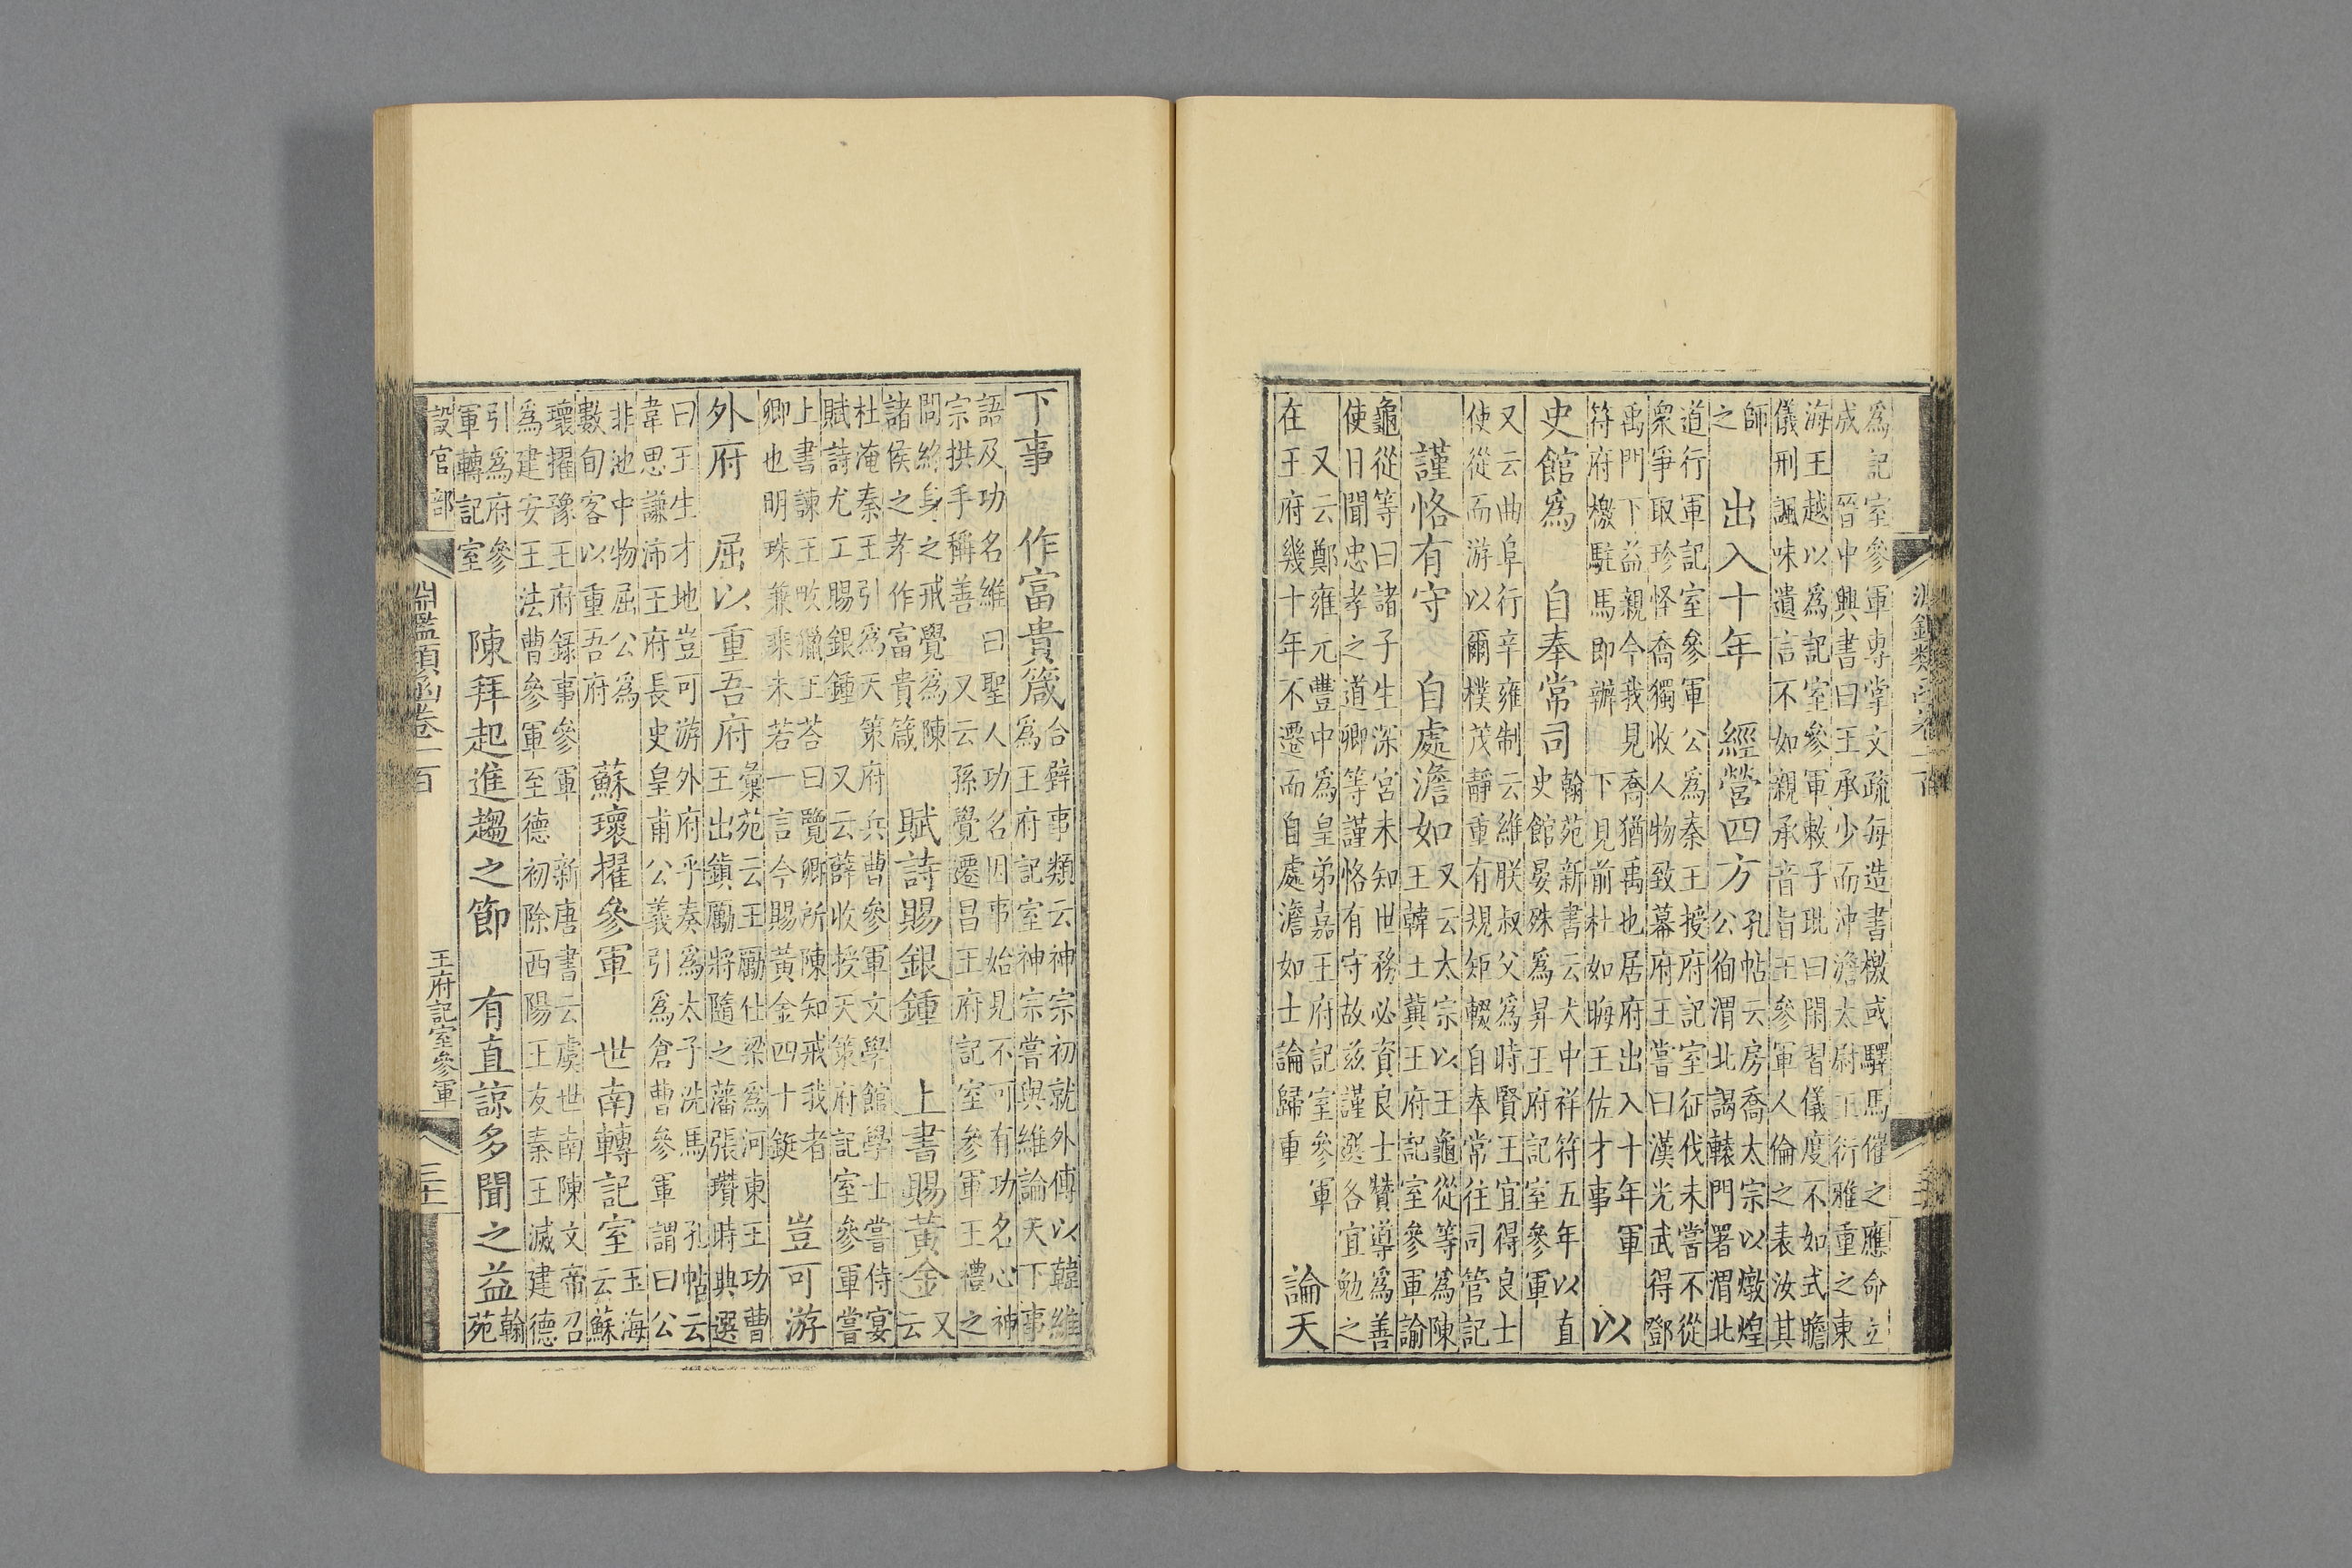 爲記室參軍專掌文疏每造書檄或驛馬催之應命立
成　晉中興書曰王承少而沖澹太尉王衍雅重之東
海王越以爲記室參軍敕子毗曰閑習儀度不如式瞻
儀刑諷味遺言不如親承音旨王參軍人倫之表汝其
師
之
出入十年　經營四方
孔帖云房喬太宗以燉煌
公徇渭北謁轅門署渭北
道行軍記室參軍公爲秦王授府記室征伐未嘗不從
衆爭取珍怪喬獨收人物致幕府王嘗曰漢光武得鄧
禹門下益親今我見喬猶禹也居府出入十年軍
符府檄駐馬即辦　下見前杜如晦王佐才事
以
史館爲　自奉常司
翰苑新書云大中祥符五年以直
史館晏殊爲昇王府記室參軍
又云曲阜行辛雍制云維朕叔父爲時賢王宜得良士
使從而游以爾樸茂靜重有規矩輟自奉常往司管記
謹恪有守　自處澹如
又云太宗以王龜從等爲陳
王韓土冀王府記室參軍諭
龜從等曰諸子生深宮未知世務必資良士贊導爲善
使日聞忠孝之道卿等謹恪有守故茲謹選各宜勉之
又云鄭雍元豐中爲皇弟嘉王府記室參軍
在王府幾十年不遷而自處澹如士論歸重
論天
下事　作富貴箴
合璧事類云神宗初就外傅以韓維
爲王府記室神宗嘗與維論天下事
語及功名維曰聖人功名因事始見不可有功名心神
宗拱手稱善　又云孫覺遷昌王府記室參軍王禮之
問終身之戒覺爲陳
諸侯之孝作富貴箴
賦詩賜銀鍾　上書賜黃金
又
云
杜淹秦王引爲天策府兵曹參軍文學館學士嘗侍宴
賦詩尤工賜銀鍾　又云薛收授天策府記室參軍嘗
上書諫王畋獵王荅曰覽卿所陳知戒我者
卿也明珠兼乘未若一言今賜黃金四十鋌
豈可游
外府　屈以重吾府
彙苑云王勵仕梁爲河東王功曹
王出鎮勵將隨之藩張瓚時典選
曰王生才地豈可游外府乎奏爲太子洗馬　孔帖云
韋思謙沛王府長史皇甫公義引爲倉曹參軍謂曰公
非池中物屈公爲
數旬客以重吾府
蘇瓌擢參軍　世南轉記室
玉海
云蘇
瓌擢豫王府錄事參軍　新唐書云虞世南陳文帝召
爲建安王法曹參軍至德初除西陽王友秦王滅建德
引爲府參
軍轉記室
陳拜起進趨之節　有直諒多聞之益
翰
苑
設官部
淵鑑類函卷一百
王府記室參軍